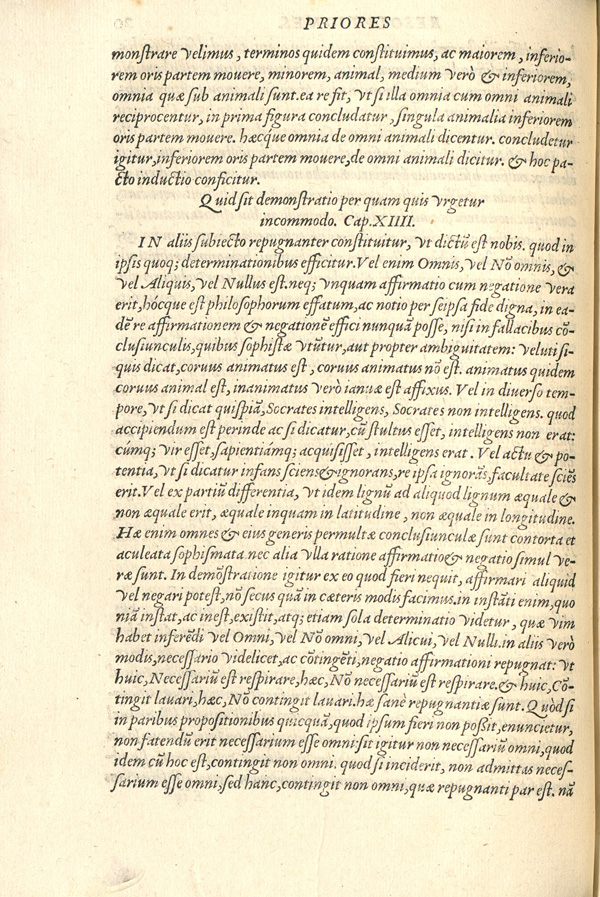 PRIORES
monstrare velimus, terminos quidem constituimus, ac maiorem, inferio-
rem oris partem mouere, minorem, animal, medium verò & inferiorem,
omnia quæ sub animali sunt. ea re fit, vt si illa omnia cum omni animali
reciprocentur, in prima figura concludatur, singula animalia inferiorem
oris partem mouere. hæcque omnia de omni animali dicentur. concludetur
igitur, inferiorem oris partem mouere, de omni animali dicitur. & hoc pa-
cto inductio conficitur.
Quid sit demonstratio per quam quis vrgetur
incommodo. Cap. XIIII.
IN aliis subiecto repugnanter constituitur, vt dictũ est nobis. quod in
ipsis quoq; determinationibus efficitur. Vel enim Omnis, vel Nõ omnis, &
vel Aliquis, vel Nullus est. neq; vnquam affirmatio cum negatione vera
erit, hócque est philosophorum effatum, ac notio per seipsa fide digna, in ea-
dẽ re affirmationem & negationẽ effici nunquã posse, nisi in fallacibus cõ-
clusiunculis, quibus sophistæ vtũtur, aut propter ambiguitatem: veluti si-
quis dicat, coruus animatus est, coruus animatus nõ est. animatus quidem
coruus animal est, inanimatus verò ianuæ est affixus. Vel in diuerso tem-
pore, vt si dicat quispiã, Socrates intelligens, Socrates non intelligens. quod
accipiendum est perinde ac si dicatur, cũ stultus esset, intelligens non erat:
cúmq; vir esset, sapientiámq; acquisisset, intelligens erat. Vel actu & po-
tentia, vt si dicatur infans sciens & ignorans, re ipsa ignorãs, facultate sciẽs
erit. Vel ex partiũ differentia, vt idem lignũ ad aliquod lignum æquale &
non æquale erit, æquale inquam in latitudine, non æquale in longitudine.
Hæ enim omnes & eius generis permultæ conclusiunculæ sunt contorta et
aculeata sophismata. nec alia vlla ratione affirmatio & negatio simul ve-
ræ sunt. In demõstratione igitur ex eo quod fieri nequit, affirmari aliquid
vel negari potest, nõ secus quã in cæteris modis facimus. in instãti enim, quo
niã instat, ac inest, existit, atq; etiam sola determinatio videtur, quæ vim
habet inferẽdi vel Omni, vel Nõ omni, vel Alicui, vel Nulli. in aliis verò
modis, necessario videlicet, ac cõtingẽti, negatio affirmationi repugnat: vt
huic, Necessariũ est respirare, hæc, Nõ necessariũ est respirare. & huic, Cõ-
tingit lauari, hæc, Nõ contingit lauari. hæ sanè repugnantiæ sunt. Quòd si
in paribus propositionibus quicquã, quod ipsum fieri non poßit, enuncietur,
non fatendũ erit necessarium esse omni: sit igitur non necessariũ omni, quod
idem cũ hoc est, contingit non omni. quod si inciderit, non admittas neces-
sarium esse omni, sed hanc, contingit non omni, quæ repugnanti par est. nã